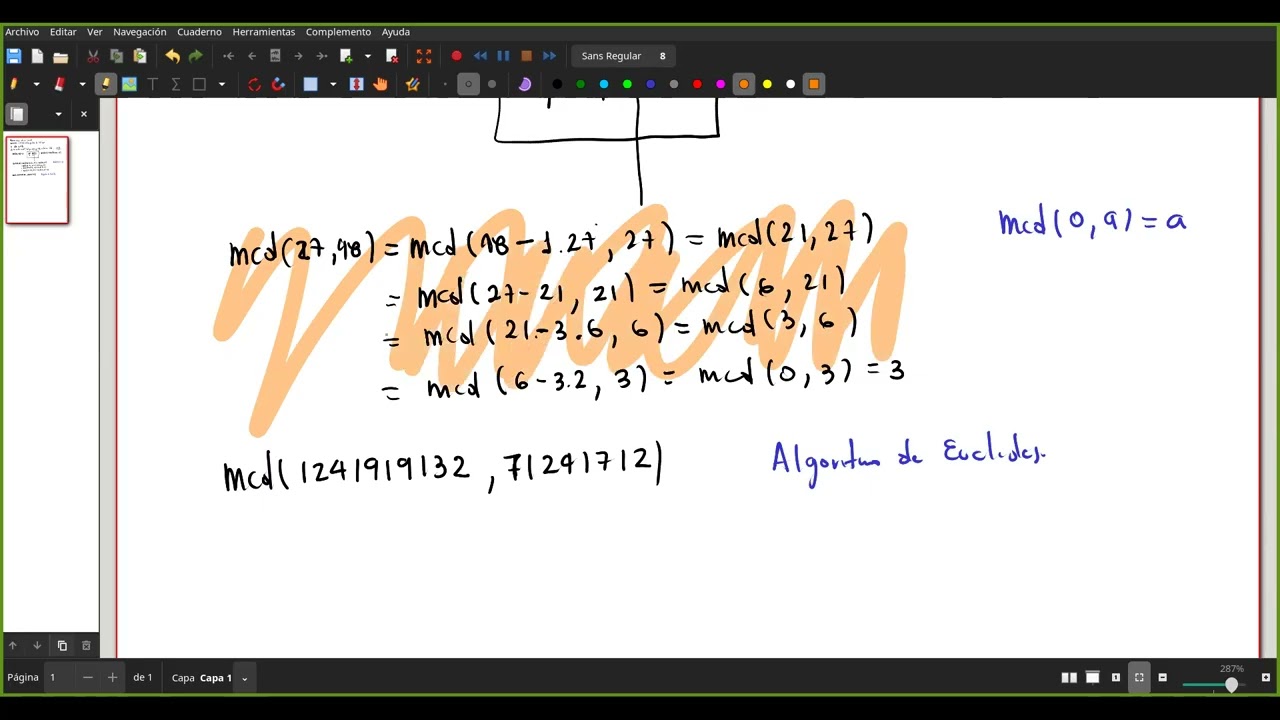 Archivo Editar Ver Navegación Cuaderno Herramientas Complemento Ayuda
Sans Regular 8
mcd(27,48) = mcd(48-1.27, 27) = mcd(21,27)
= mcd(27-21, 21) = mcd(6, 21)
= mcd(21-3.6, 6) = mcd(3, 6)
= mcd(6-3.2, 3) = mcd(0,3) = 3
mcd(0,a) = a
mcd(1241919132, 71241712)
Algoritmo de Euclides.
Página 1 de 1 Capa Capa 1
287%